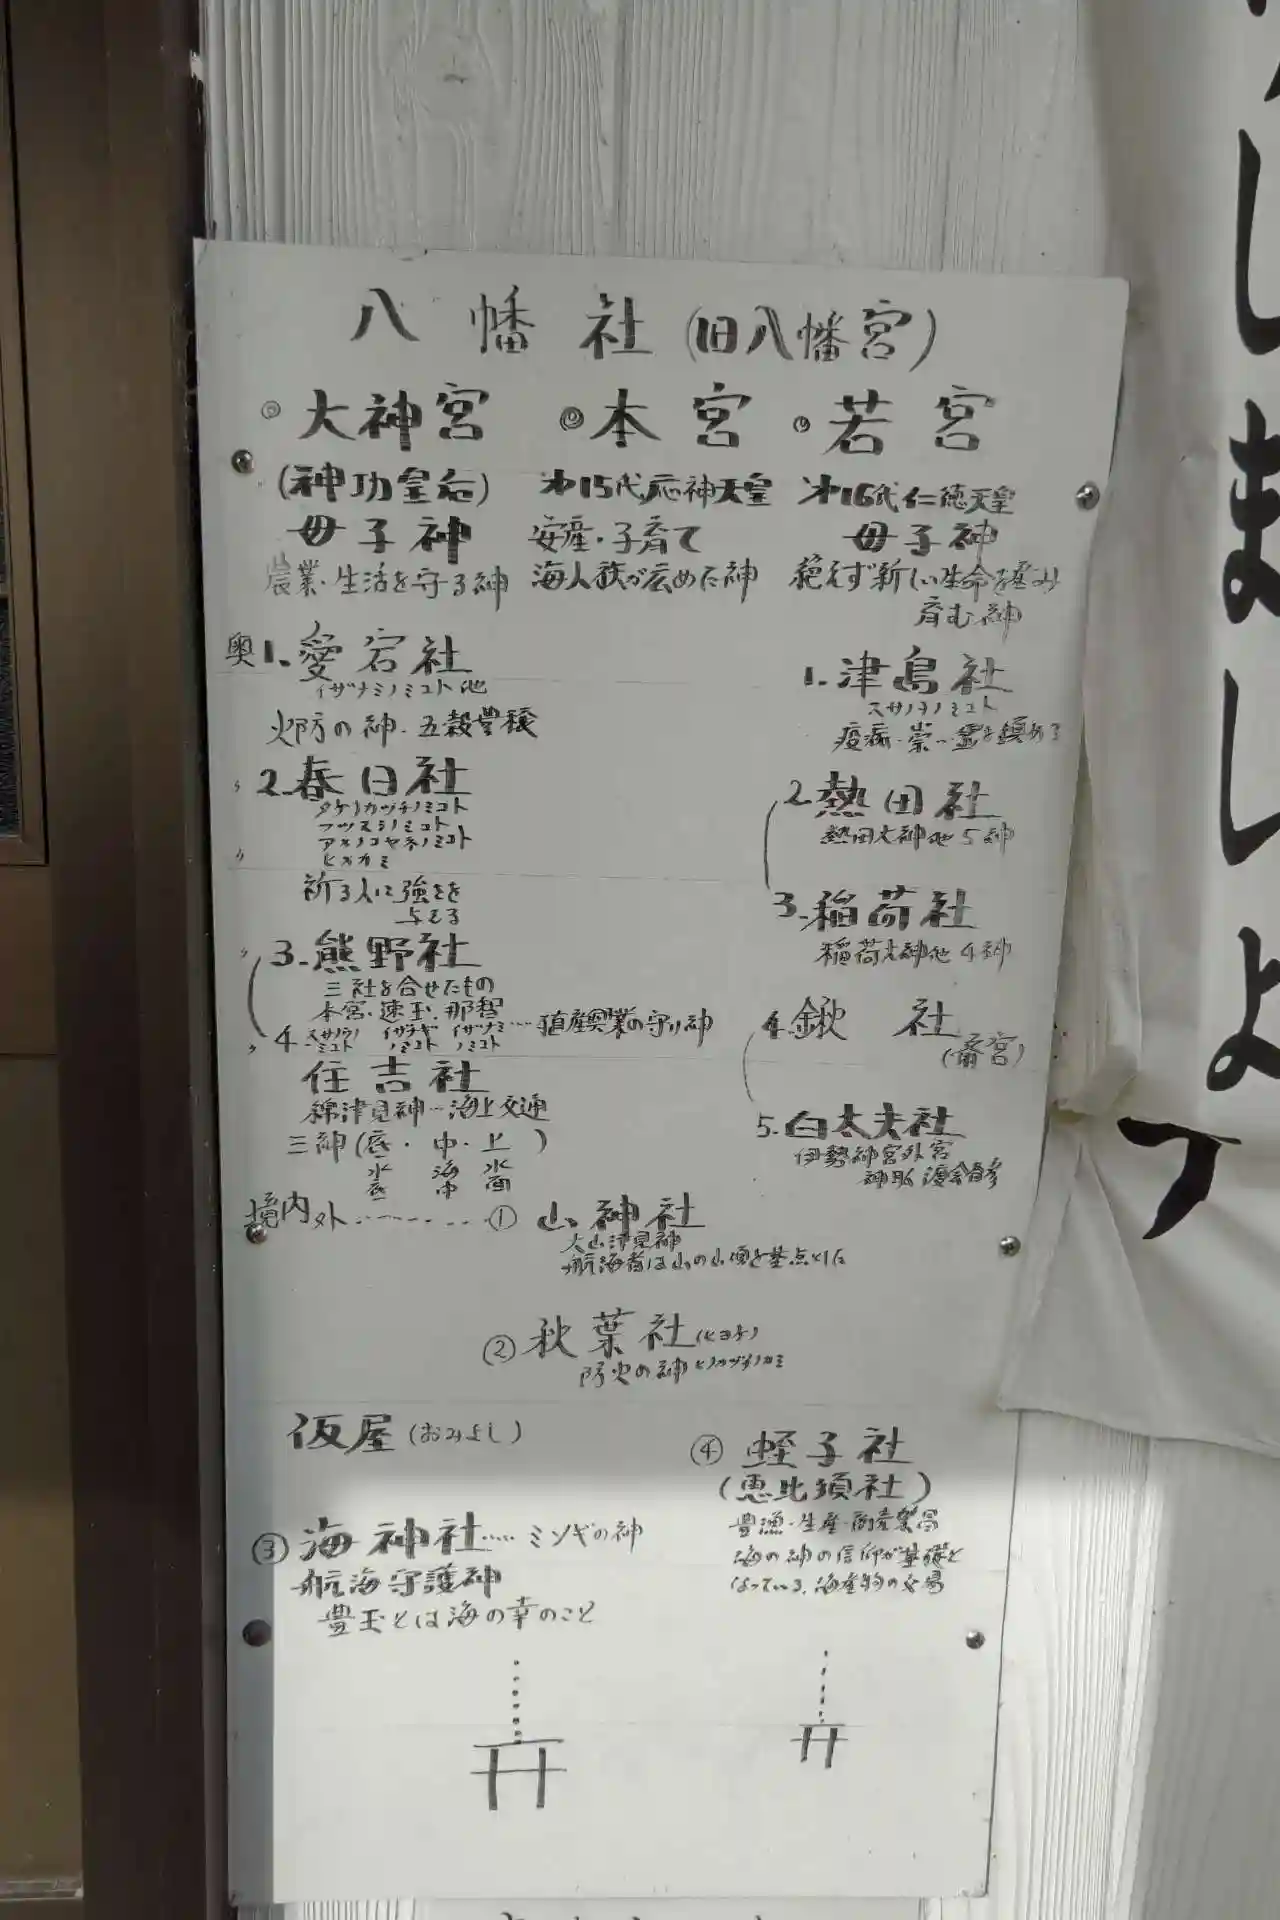 八幡社(旧八幡宮)
◎大神宮 ◎本宮 ◎若宮
(神功皇后) 第15代応神天皇 第16代仁徳天皇
母子神 安産・子育て 母子神
農業・生活を守る神 海人族が広めた神 絶えず新しい生命を産み
育む神
奥1.愛宕社
イザナミノミコト他
火防の神・五穀豊穣
1.津島社
スサノヲノミコト
疫病・祟・霊を鎮める
〃2.春日社
タケノカッチノミコト
フッヌシノミコト
アメノコヤネノミコト
ヒメカミ
〃
祈る人に強さを
与える
2.熱田社
熱田大神他5神
3.稲荷社
稲荷大神他4神
〃3.熊野社
三社を合せたもの
本宮・速玉・那智
スサノヲノミコト イザナギノミコト イザナミノミコト…殖産興業の守り神
〃4.
住吉社
綿津見神…海上交通
三神(底・中・上)
水底 海中 水面
4.鍬社
(斎宮)
5.白太夫社
伊勢神宮外宮
神主 渡会春彦
境内外………①山神社
大山津見神
航海者は山の山頂を基点とした
②秋葉社(ヒヨケ)
防火の神ヒノカヅチノカミ
仮屋(おみよし)
③海神社……ミソギの神
航海守護神
豊玉とは海の幸のこと
④蛭子社
(恵比須社)
豊漁・生産・商売繁昌
海の神の信仰が基礎と
なっている.海産物の交易
しましょ